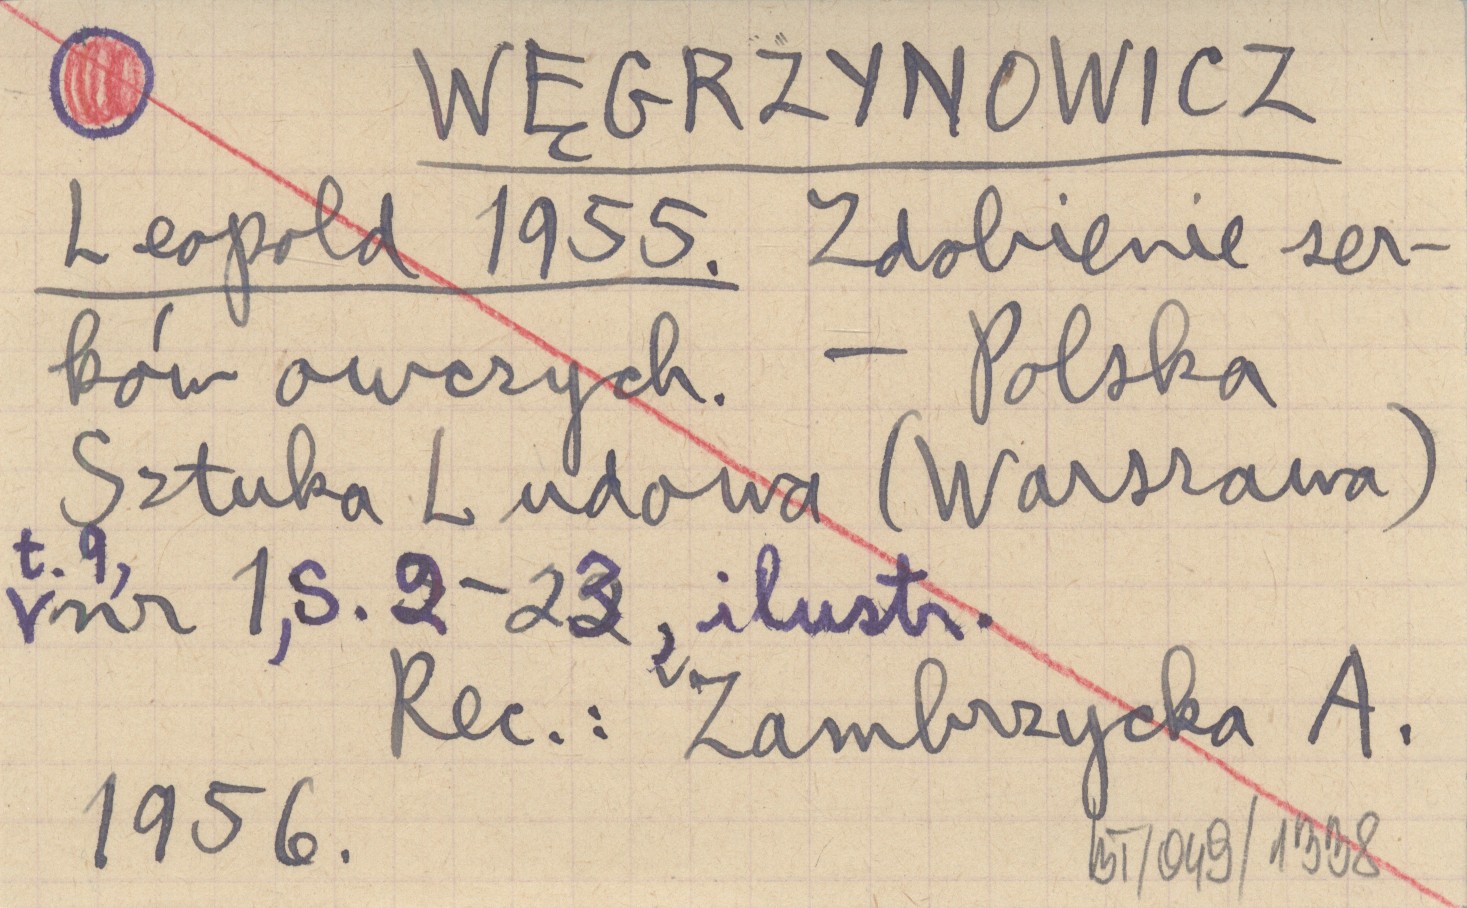 WĘGRZYNOWICZ
Leopold 1955. Zdobienie ser-
ków owczych. — Polska
Sztuka Ludowa (Warszawa)
t. 9,
nr 1, s. 2-23, ilustr.
Rec.: Zambrzycka A.
1956.
BT/049/1338